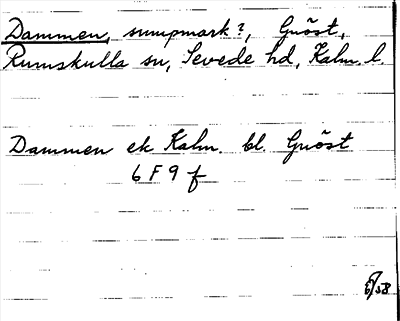 Dammen, sumpmark?, Gnöst,
Rumskulla sn, Sevede hd, Kalm. l.
Dammen ek Kalm. bl. Gnöst
6 F 9 f